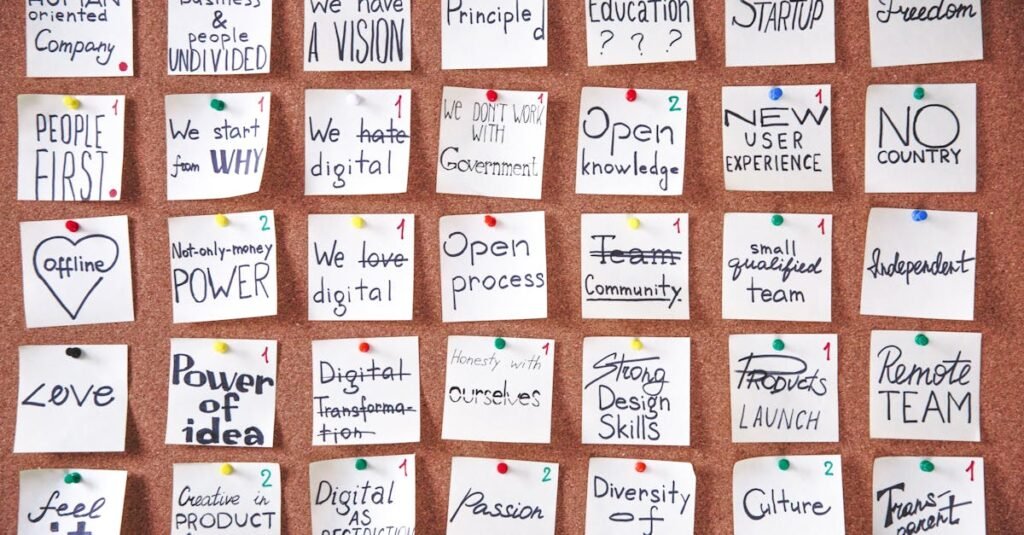 HUMAN
oriented
Company
Business
&
people
UNDIVIDED
We have
A VISION
Principled
Education
? ? ?
STARTUP
Freedom
1
PEOPLE
FIRST
1
We start
from WHY
1
We hate
digital
1
We DON'T WORK
WITH
Government
2
Open
knowledge
1
NEW
USER
EXPERIENCE
NO
COUNTRY
offline
2
Not-only-money
POWER
1
We love
digital
Open
process
1
Team
Community
1
small
qualified
team
Independent
Love
1
Power
of
idea
Digital
Transforma-
tion
1
Honesty with
ourselves
Strong
Design
Skills
1
Products
LAUNCH
Remote
TEAM
feel
it
2
Creative in
PRODUCT
1
Digital
AS
2
Passion
Diversity
of
2
Culture
1
Trans-
parent